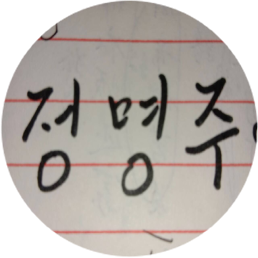 정명주